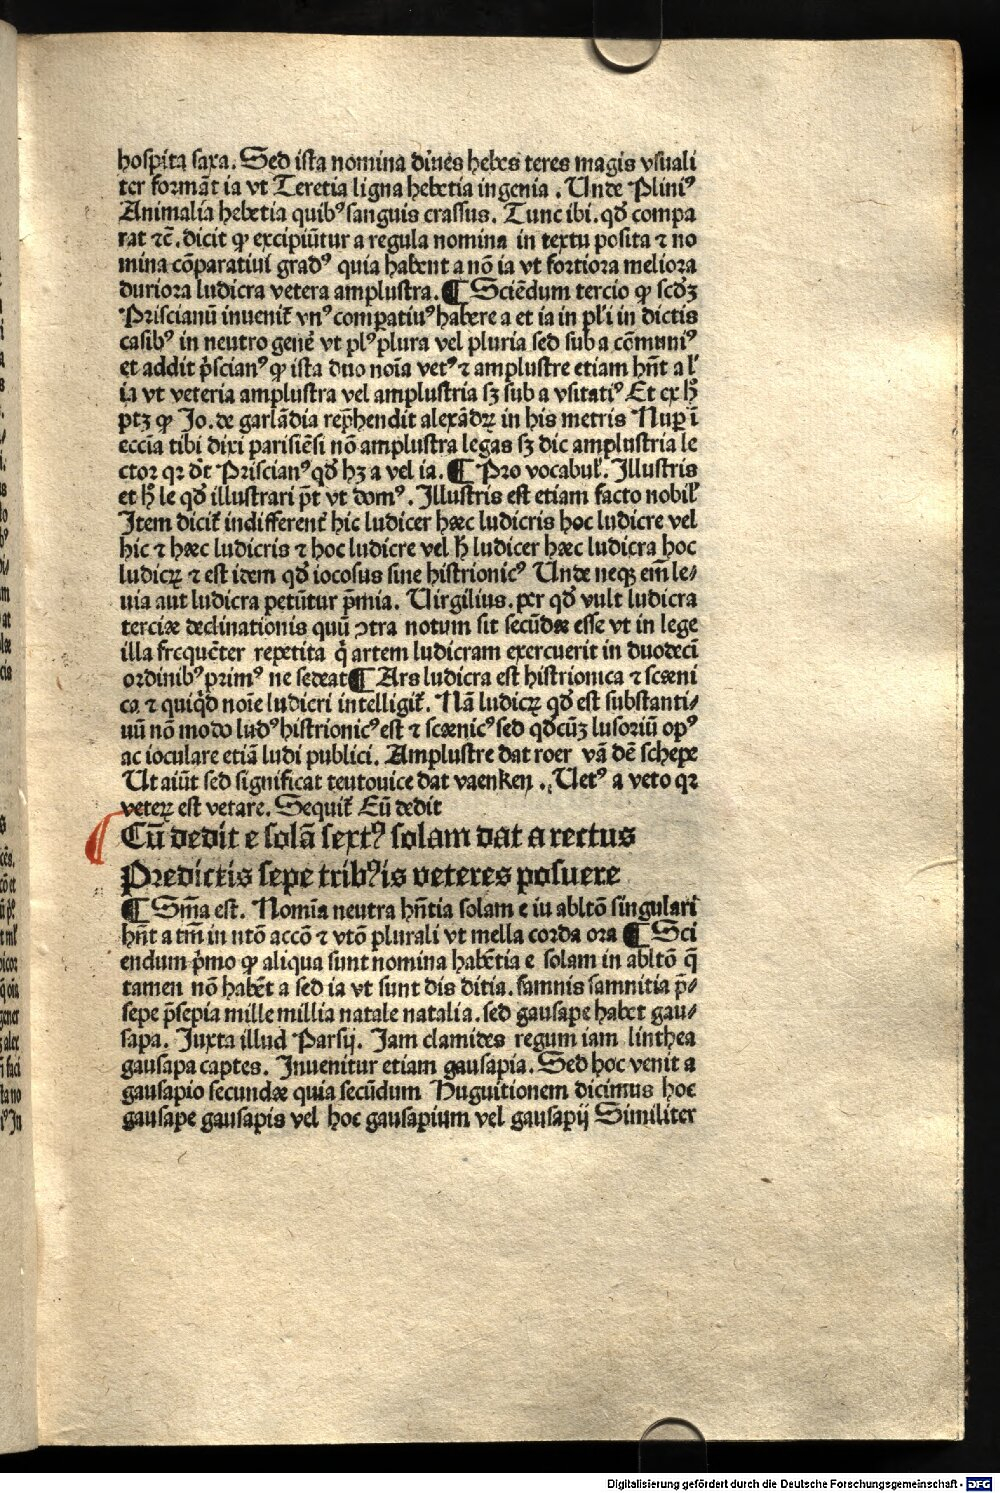 hospita saxa. Sed ista nomina diues hebes teres magis vsuali
ter formāt ia vt Teretia ligna hebetia ingenia. Unde Pliniꝰ
Animalia hebetia quibꝰ sanguis crassus. Tunc ibi. qđ compa
rat ⁊c̄. dicit ꝙ excipiūtur a regula nomina in textu posita ⁊ no
mina cōparatiui gradꝰ quia habent a nō ia vt fortiora meliora
duriora ludicra vetera amplustra. ¶ Sciēdum tercio ꝙ scđꝫ
Priscianū inuenit᷑ vnꝰ compatiuꝰ habere a et ia in pl'i in dictis
casibꝰ in neutro genē vt plꝰ plura vel pluria sed sub a cōmuniꝰ
et addit p̄scianꝰ ꝙ ista duo noīa vetꝰ ⁊ amplustre etiam hn̄t a l'
ia vt veteria amplustra vel amplustria sꝫ sub a vsitatiꝰ Et ex h̄
ptꝫ ꝙ Jo. de garlādia rep̄hendit alexādꝝ in his metris Nuꝑ ī
eccīa tibi dixi parisiēsi nō amplustra legas sꝫ dic amplustria le
ctor qr d̄t Priscianꝰ qđ hꝫ a vel ia. ¶ Pro vocabul'. Illustris
et h̄ le qđ illustrari p̄t vt domꝰ. Illustris est etiam facto nobil'
Item dicit᷑ indifferent᷑ hic ludicer hæc ludicris hoc ludicre vel
hic ⁊ hæc ludicris ⁊ hoc ludicre vel h̄ ludicer hæc ludicra hoc
ludicꝝ ⁊ est idem qđ iocosus siue histrionicꝰ Unde neqꝫ em̄ le⸗
uia aut ludicra petūtur p̄mia. Uirgilius. per qđ vult ludicra
terciæ declinationis quū ↄtra notum sit secūdæ esse vt in lege
illa frequēter repetita q̇ artem ludicram exercuerit in duodecī
ordinibꝰ primꝰ ne sedeat ¶ Ars ludicra est histrionica ⁊ scæni
ca ⁊ quiq̇d noīe ludicri intelligit᷑. Nā ludicꝝ qđ est substanti⸗
uū nō modo ludꝰ histrionicꝰ est ⁊ scænicꝰ sed qđcūꝫ lusoriū opꝰ
ac ioculare etiā ludi publici. Amplustre dat roer vā dē schepe
Ut aiūt sed significat teutonice dat vaenken. Uetꝰ a veto qꝛ
veteꝝ est vetare. Sequit᷑ Cū dedit
Cū dedit e solā sextꝰ solam dat a rectus
Predictis sepe tribꝰ is veteres posuere
¶ Sm̄a est. Nomīa neutra hn̄tia solam e iu abltō singulari
hn̄t a tm̄ in ntō accō ⁊ vtō plurali vt mella corda ora ¶ Sci
endum p̄mo ꝙ aliqua sunt nomina habētia e solam in abltō q̄
tamen nō habēt a sed ia vt sunt dis ditia. samnis samnitia p̄⸗
sepe p̄sepia mille millia natale natalia. sed gausape habet gau⸗
sapa. Juxta illud Parsij. Jam clamides regum iam linthea
gausapa captes. Inuenitur etiam gausapia. Sed hoc venit a
gausapio secundæ quia secūdum Huguitionem dicimus hoc
gausape gausapis vel hoc gausapium vel gausapij Similiter
Digitalisierung gefördert durch die Deutsche Forschungsgemeinschaft - DFG